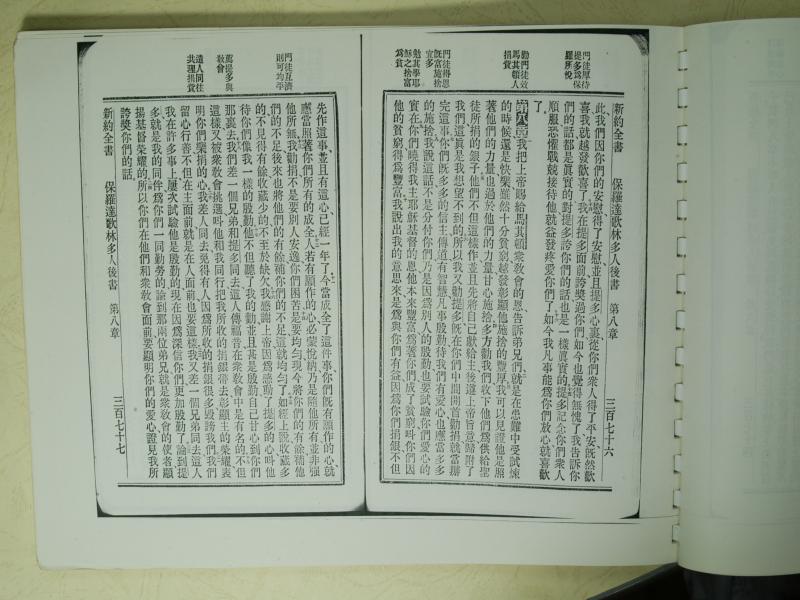 門徒厚待
提多爲保
羅所悅
勸門徒效
馬其頓人
捐貲
門徒得恩
旣富施捨
宜多
勉其學耶
穌之捨富
爲貧
新約全書 保羅達歌林多人後書 第八章 三百七十六
此、我們因你們的安慰、得了安慰、並且提多心裏從你們衆人得了平安、旣然歡
喜、我就越發歡喜了、我在提多面前誇獎過你們、如今也覺得無愧了、我告訴你
們的話都是眞實的、對提多誇你們的話、也是一樣眞實的、提多記念你們衆人
順服、恐懼戰兢接待他、就益發疼愛你們了、如今我凡事能爲你們放心、就喜歡
了、
第八章 我把上帝賜給馬其頓衆敎會的恩、告訴弟兄們、就是在患難中受試煉
的時候、還是快樂、雖然十分貧窮、越發彰顯他施捨的豐厚、我可以見證他是照
著他們的力量、也過於他們的力量、甘心施捨、多方勸我們收下他們爲供給聖
徒所捐的銀子、他們不但這樣作、並且先將自己獻給主、後遵上帝旨意歸附了
我們、這眞是我想望不到的、所以我又勸提多旣在你們中間開首勸捐、就當辦
完這事、你們旣多多的信主傳道、有智慧、凡事殷勤、待我們有愛心、也應當多多
的施捨、我說這話不是分付你們、乃是因爲別人的殷勤、也要試驗你們愛心的
眞實、你們曉得我主耶穌基督的恩、他本來豐富、爲著你們成了貧窮、叫你們因
他的貧窮得爲豐富、我說出我的意思來、是爲與你們有益、因爲你們捐銀、不但
門徒互濟
則可均平
薦提多與
敎會
遣人同往
共理捐貲
先作這事、並且有這心、已經一年了、今當成全了這件事、你們旣有願作的心、就
應當照著你們所有的成全、人若有願作的心、必蒙悅納、乃是隨他所有、並非强
他所無、我勸捐不是要別人安逸、你們困苦、是要均勻、現今將你們的有餘補他
們的不足、後來也將他們的有餘補你們的不足、這就均勻了、如經上說、收藏多
的不見得有餘、收藏少的不至於缺欠、我感謝上帝、因爲感動了提多的心、叫他
待你們像我一樣的殷勤、他不但聽了我的勸、並且甚是殷勤、自己甘心到你們
那裏去、我們差一個兄弟和提多同去、這人傳福音、在衆敎會中是有名的、不但
這樣、又被衆敎會挑選、叫他和我同行、把我所收的捐銀帶去、彰顯主的榮耀、表
明你們樂捐的心、我差人同去、免得有人因爲所收的捐銀很多毀謗我們、我們
留心行善、不但在主面前、就是在人面前也要這樣、我又差一個兄弟同去、這人
我在許多事上屢次試驗他是殷勤的、現在因爲深信你們、更加殷勤了、論到提
多、就是我的同伴、爲你們一同勤勞的、論到那兩位弟兄、就是衆敎會的使者、顯
揚基督榮耀的、所以你們在他們和衆敎會面前、要顯明你們的愛心、證見我所
誇獎你們的話、
新約全書 保羅達歌林多人後書 第八章 三百七十七